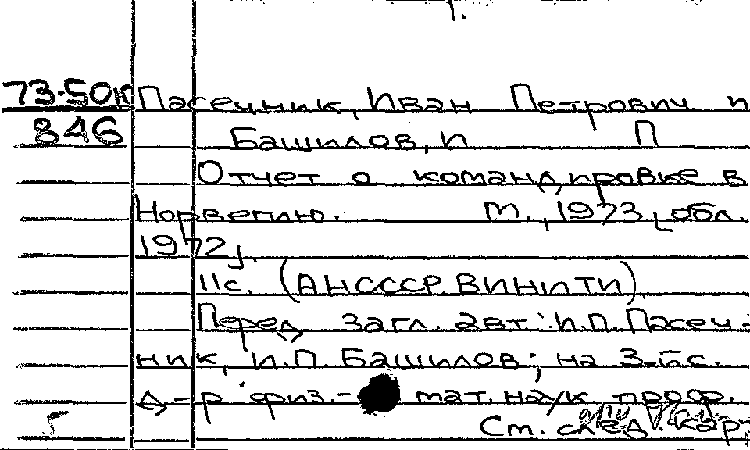 73-50к Пасечник, Иван Петрович и
846 Башилов, И П
Отчет о командировке в
Норвегию. М., 1973 [обл.
1972].
11с. (АНСССР. ВИНИТИ)
Перед загл. авт.: И.П. Пасеч-
ник, И.П. Башилов; на 3-й с.
д-р физ.- мат. наук проф.
См. след. карт